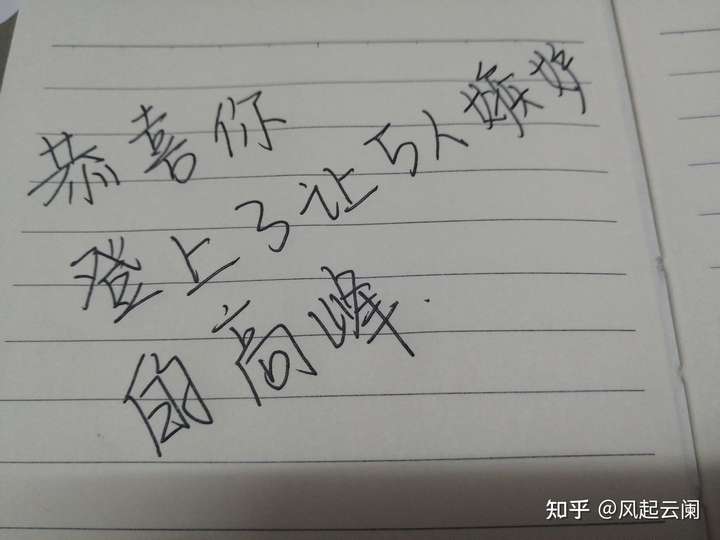 恭喜你
登上了让万人嫉妒
的高峰.
知乎 @风起云阑